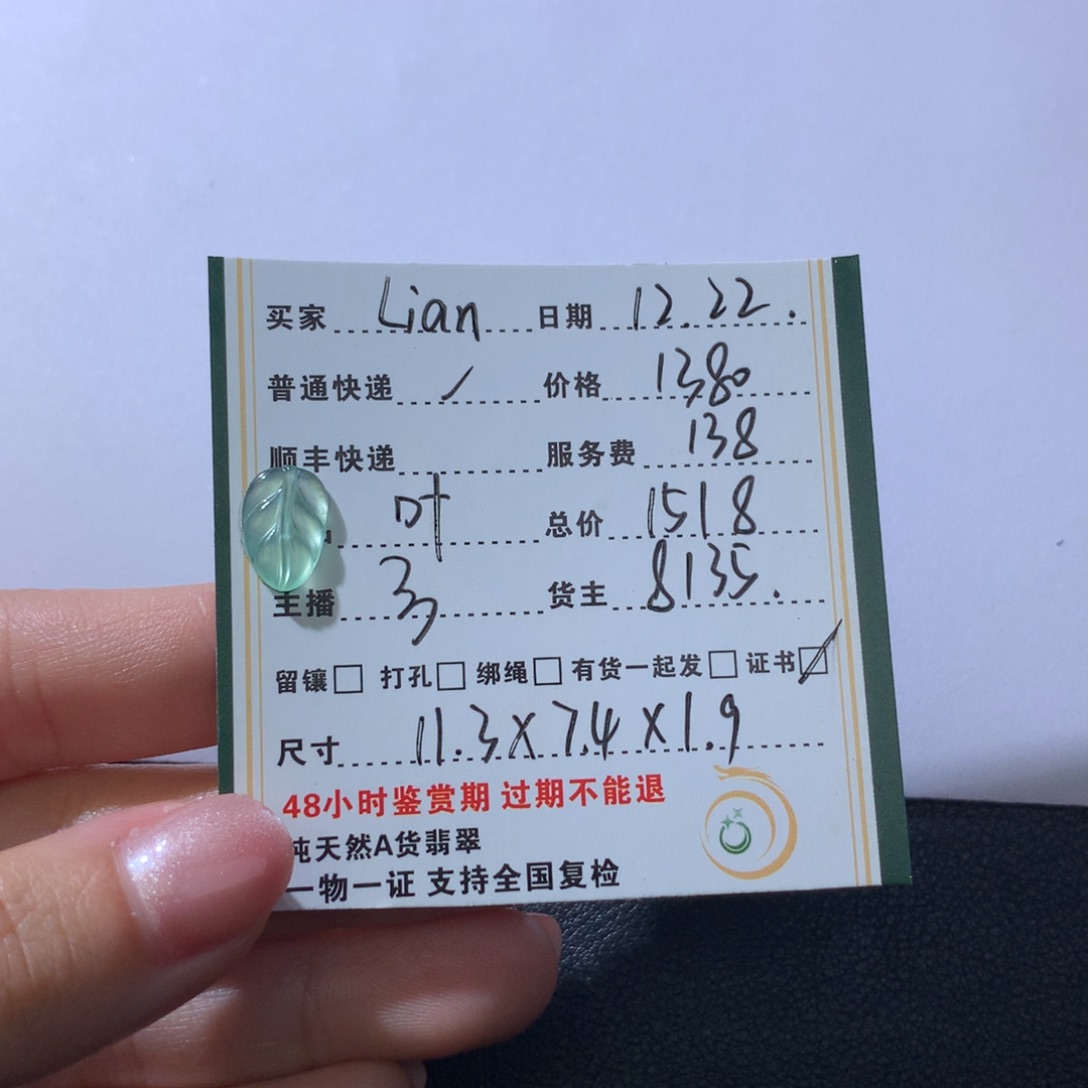 买家 Lian 日期 12.22.
普通快递 / 价格 1380
顺丰快递 服务费 138
叶 总价 1518
主播 货主 8135.
留镶□ 打孔□ 绑绳□ 有货一起发□ 证书☑
尺寸 11.3X7.4X1.9
48小时鉴赏期 过期不能退
纯天然A货翡翠
一物一证 支持全国复检